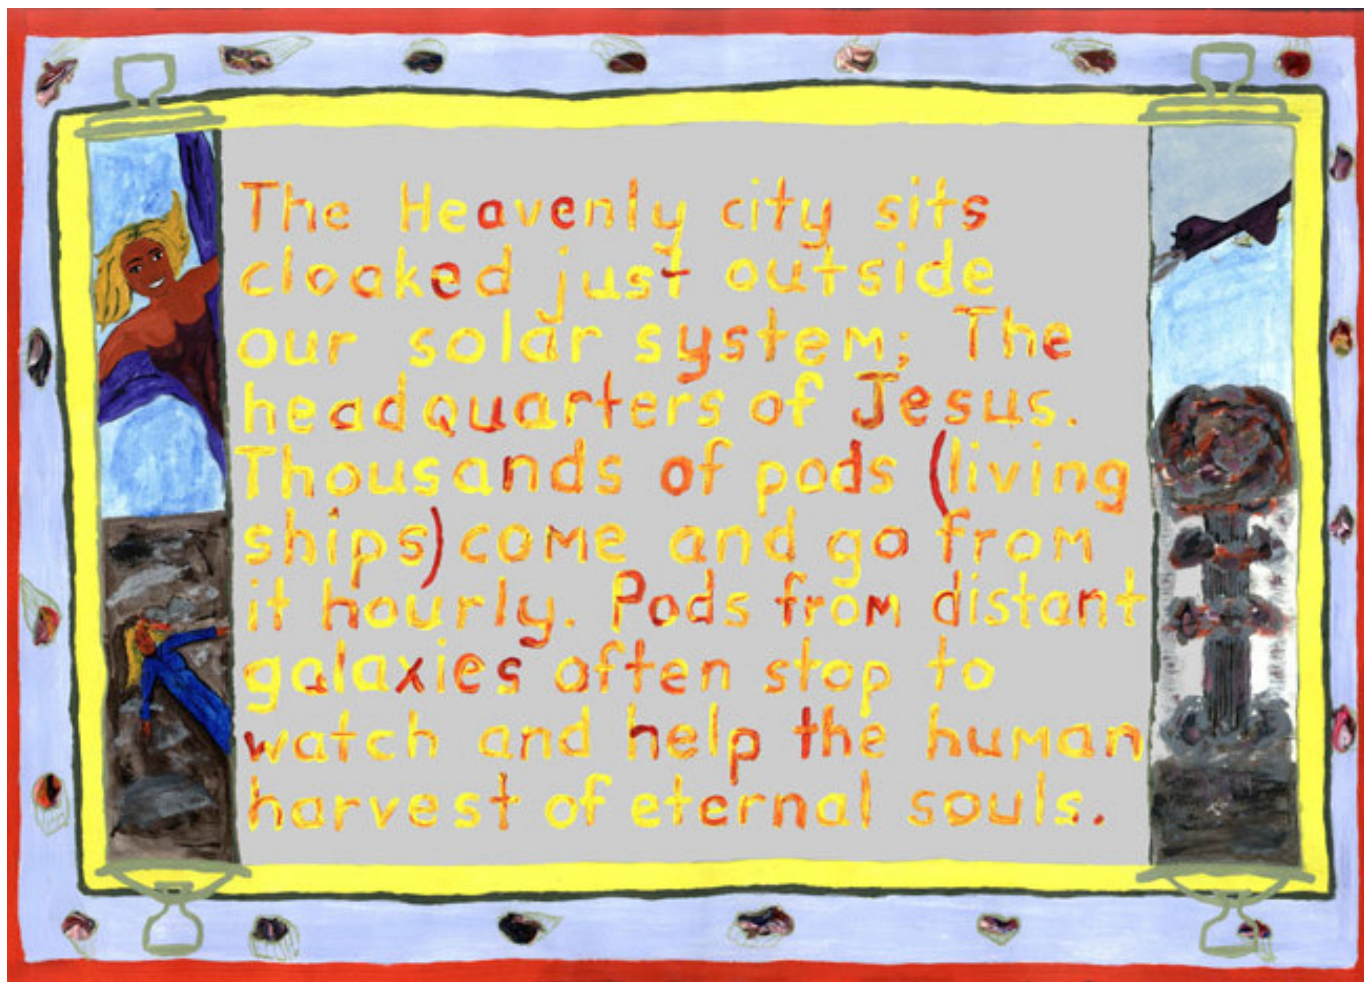 The Heavenly city sits
cloaked just outside
our solar system; The
headquarters of Jesus.
Thousands of pods (living
ships) come and go from
it hourly. Pods from distant
galaxies often stop to
watch and help the human
harvest of eternal souls.